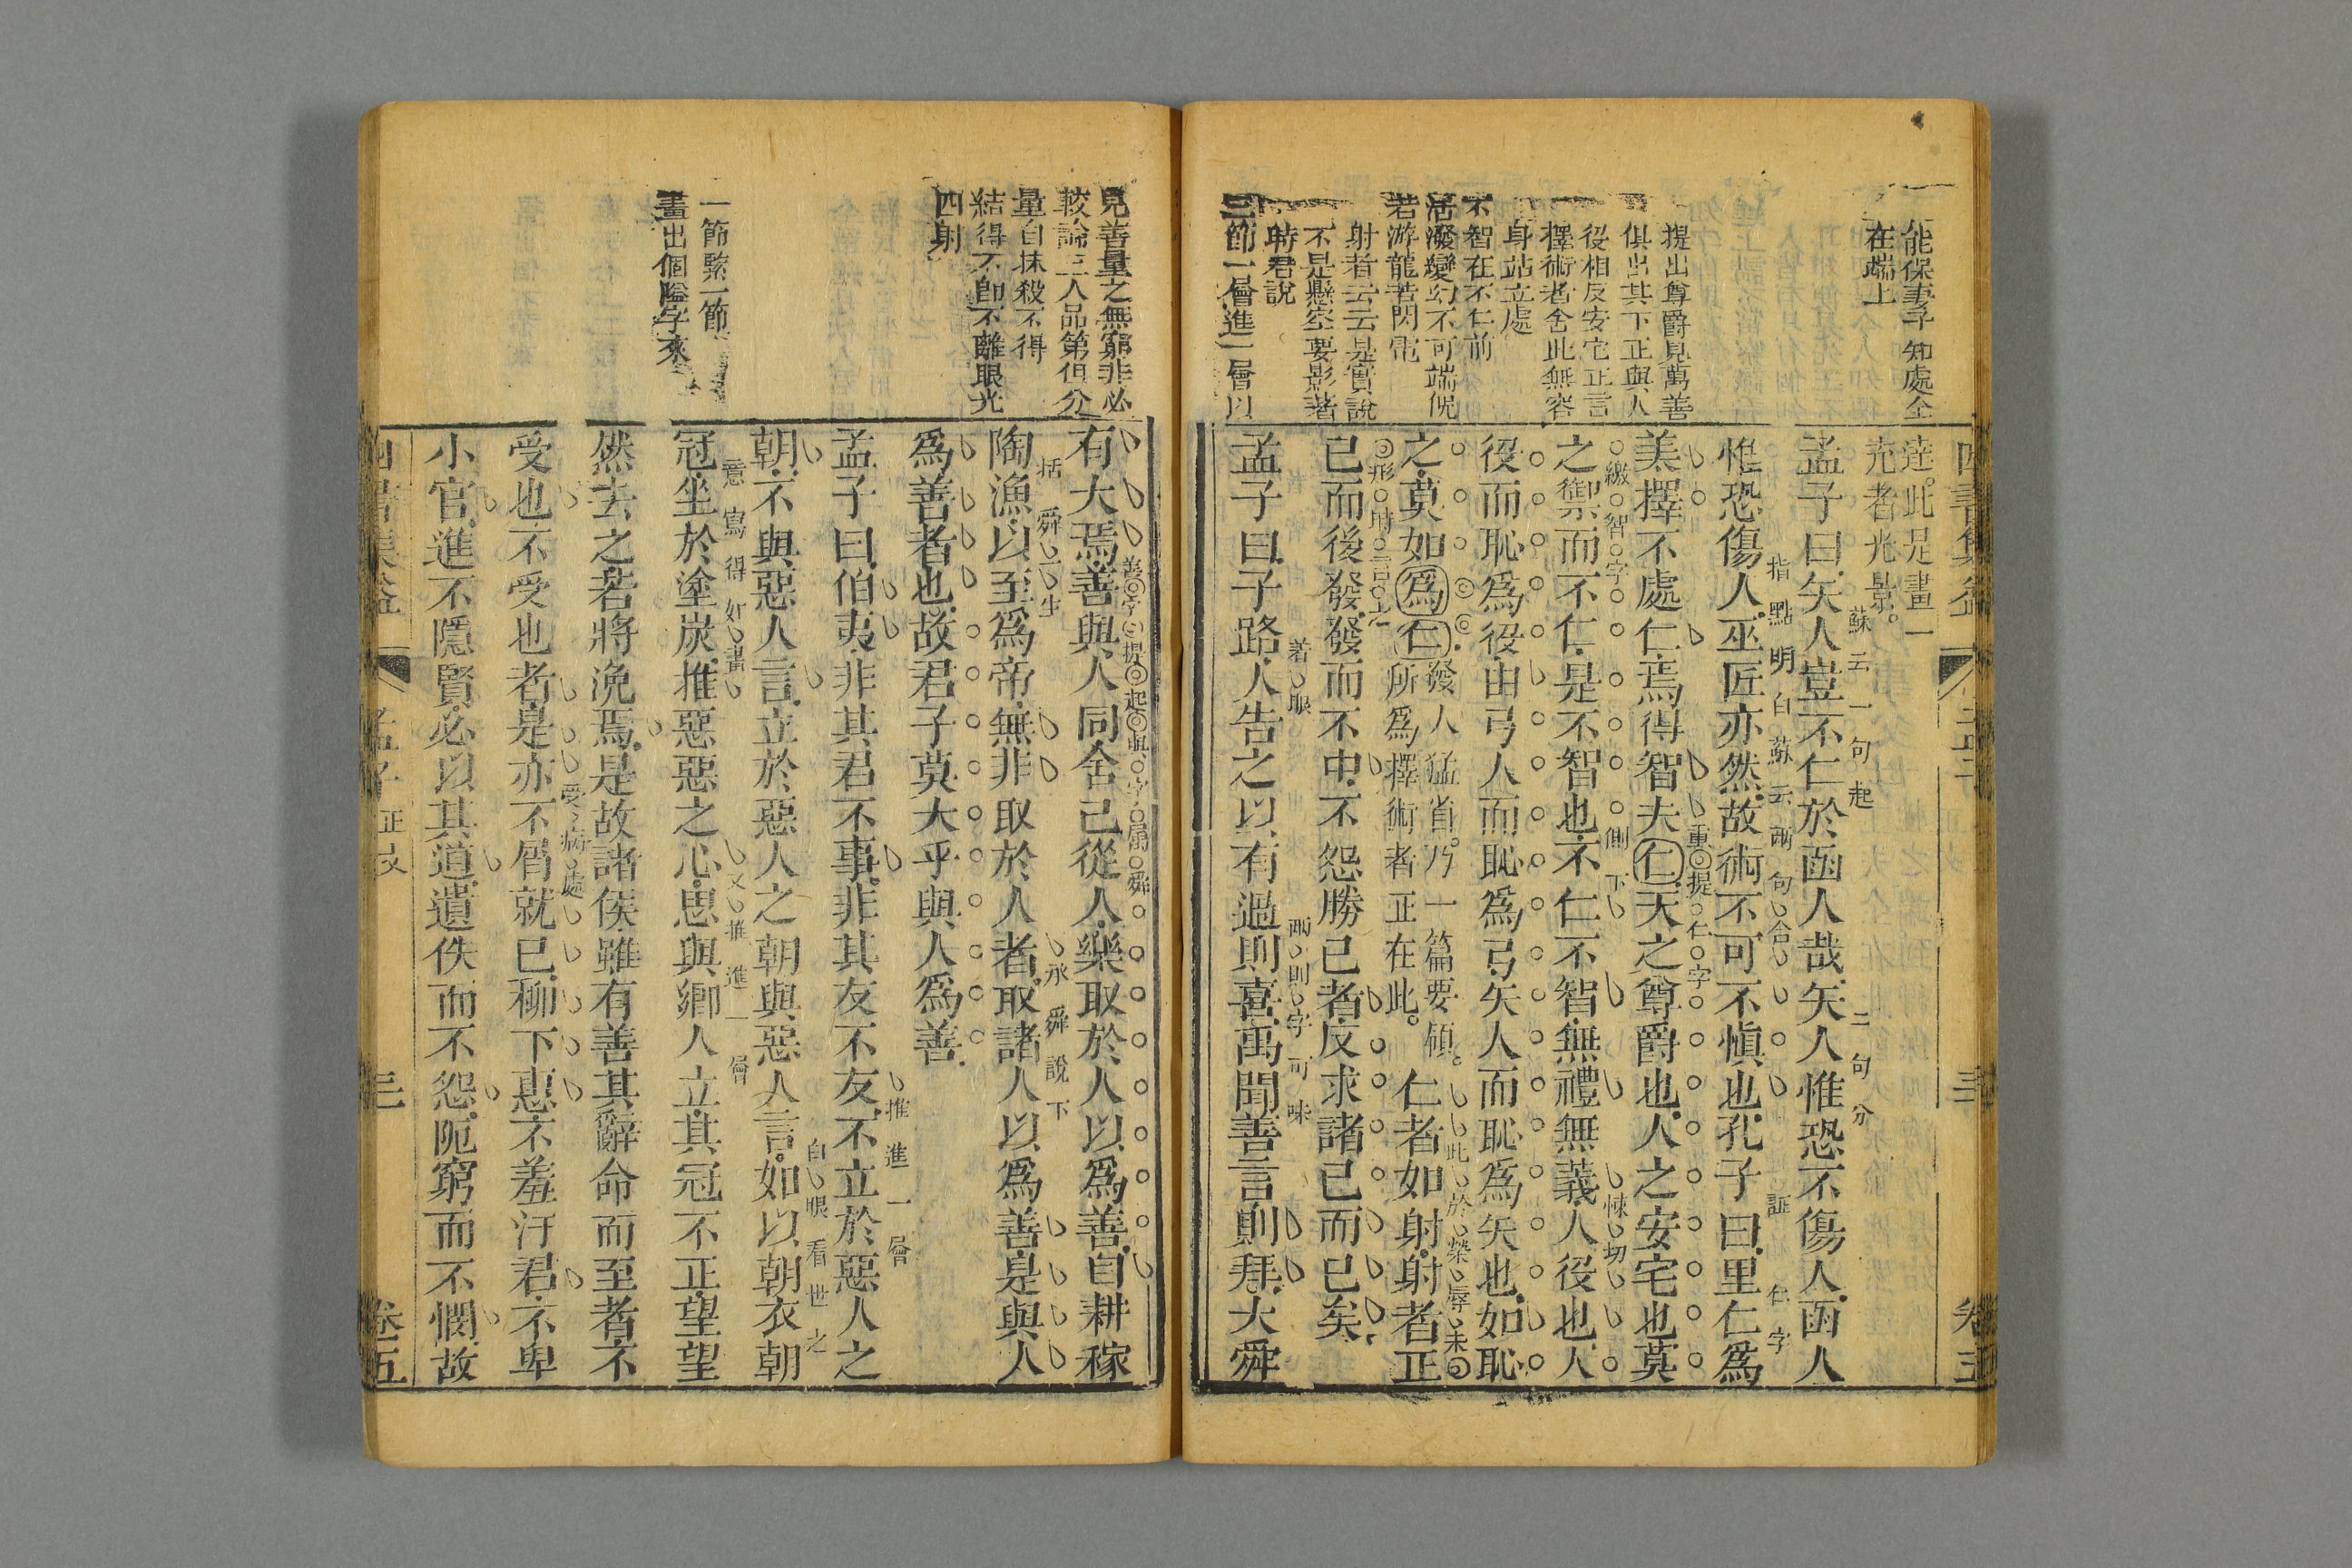 能保妻子知處全
在端上
提出尊爵見萬善
俱出其下正與人
役相反安宅正言
擇術者舍此無容
身站立處
不智在不仁前
活潑變幻不可端倪
若游龍若閃電
射者云云是實說
不是懸空要影著
時君說
三節一層進一層以
達此是畫一
充者光景。
蘇云一句起 二句分
孟子曰矢人豈不仁於函人哉矢人惟恐不傷人函人
指點明白蘇云兩句合 証仁字
惟恐傷人巫匠亦然故術不可不愼也孔子曰里仁爲
重提仁字
美擇不處仁焉得智夫仁天之尊爵也人之安宅也莫
繳智字 側下 悚切
之禦而不仁是不智也不仁不智無禮無義人役也人
役而恥爲役由弓人而恥爲弓矢人而恥爲矢也如恥
此於榮辱未
之莫如爲仁發人猛省乃一篇要領。所爲擇術者正在此。仁者如射射者正
形射言之
已而後發發而不中不怨勝己者反求諸己而已矣
着眼 兩則字可味
孟子曰子路人告之以有過則喜禹聞善言則拜大舜
四書集益
孟子
卷五
見善量之無窮非必
較論三人品第但分
量自抹殺不得
結得不即不離眼光
四射
一節緊一節
畫出個隘字來
善字提起與字屬舜
有大焉善與人同舍己從人樂取於人以爲善自耕稼
括舜一生 承舜說下
陶漁以至爲帝無非取於人者取諸人以爲善是與人
爲善者也故君子莫大乎與人爲善
推進一層
孟子曰伯夷非其君不事非其友不友不立於惡人之
白眼看世之
朝不與惡人言立於惡人之朝與惡人言如以朝衣朝
意寫得如畫 又推進一層
冠坐於塗炭推惡惡之心思與鄕人立其冠不正望望
然去之若將浼焉是故諸侯雖有善其辭命而至者不
受病處
受也不受也者是亦不屑就已柳下惠不羞汙君不卑
小官進不隱賢必以其道遺佚而不怨阨窮而不憫故
孟子正文
卷五